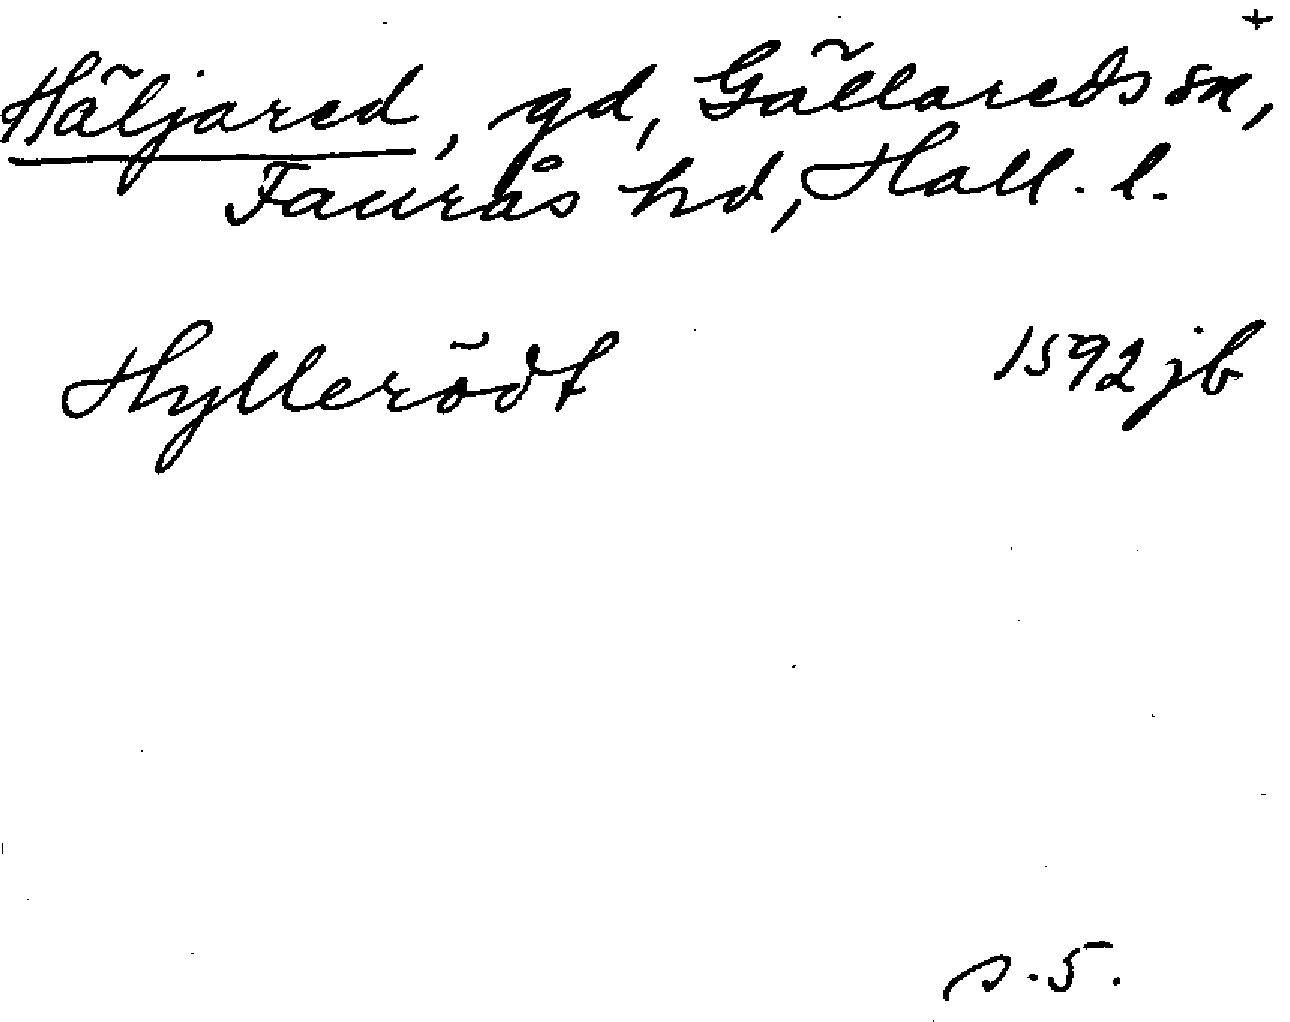 +
Häljared, gd, Gällareds sn,
Faurås hd, Hall. l.
Hyllerödt 1592 jb
s. 5.